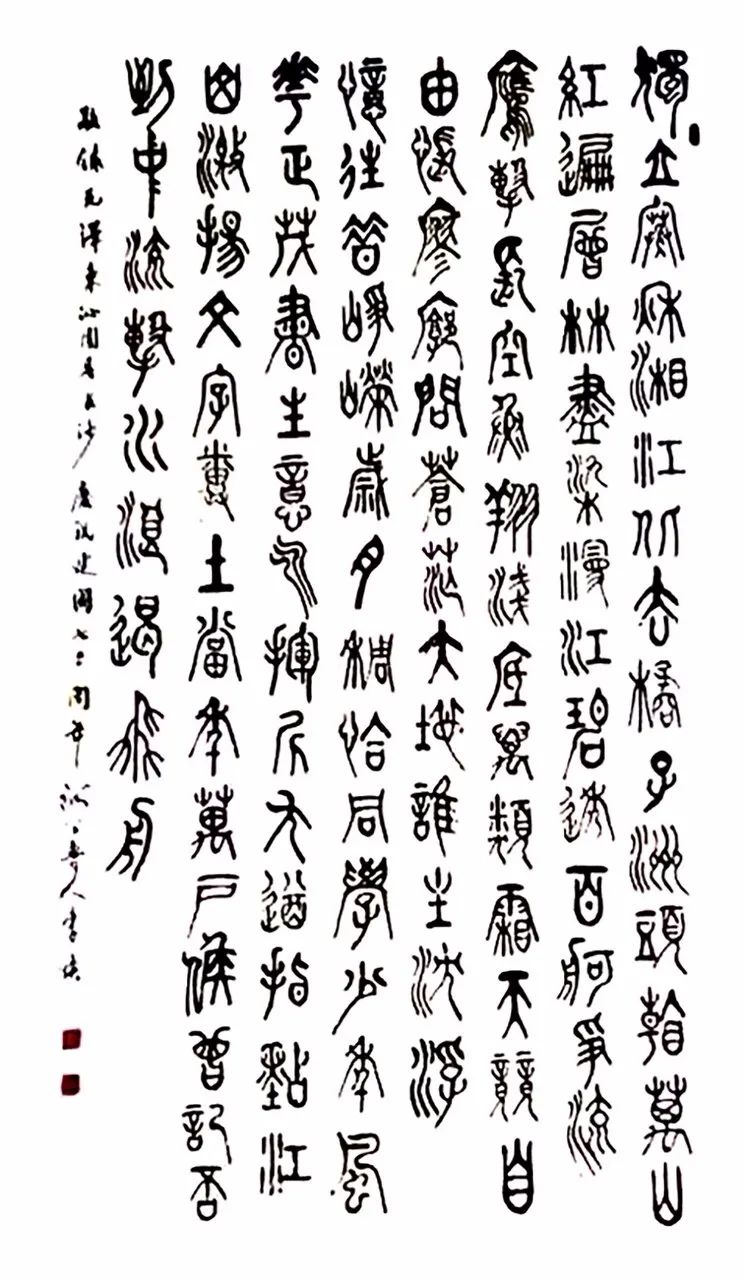 獨立寒秋湘江北去橘子洲頭看萬山
紅遍層林盡染漫江碧透百舸爭流
鷹擊長空魚翔淺底萬類霜天競自
由悵寥廓問蒼茫大地誰主沈浮
憶往昔崢嶸歲月稠恰同學少年風
華正茂書生意氣揮斥方遒指點江
山激揚文字糞土當年萬戶侯曾記否
到中流擊水浪遏飛舟
敬錄毛澤東沁園春長沙慶祝建國七十周年